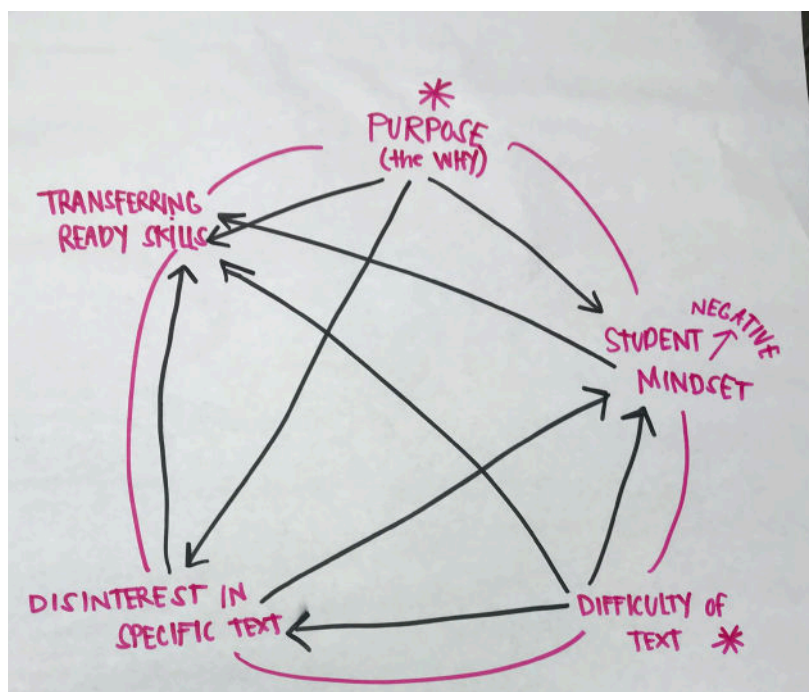 *
PURPOSE
(the WHY)
TRANSFERRING
READY SKILLS
NEGATIVE
STUDENT ↗
MINDSET
DISINTEREST IN
SPECIFIC TEXT
DIFFICULTY OF
TEXT *